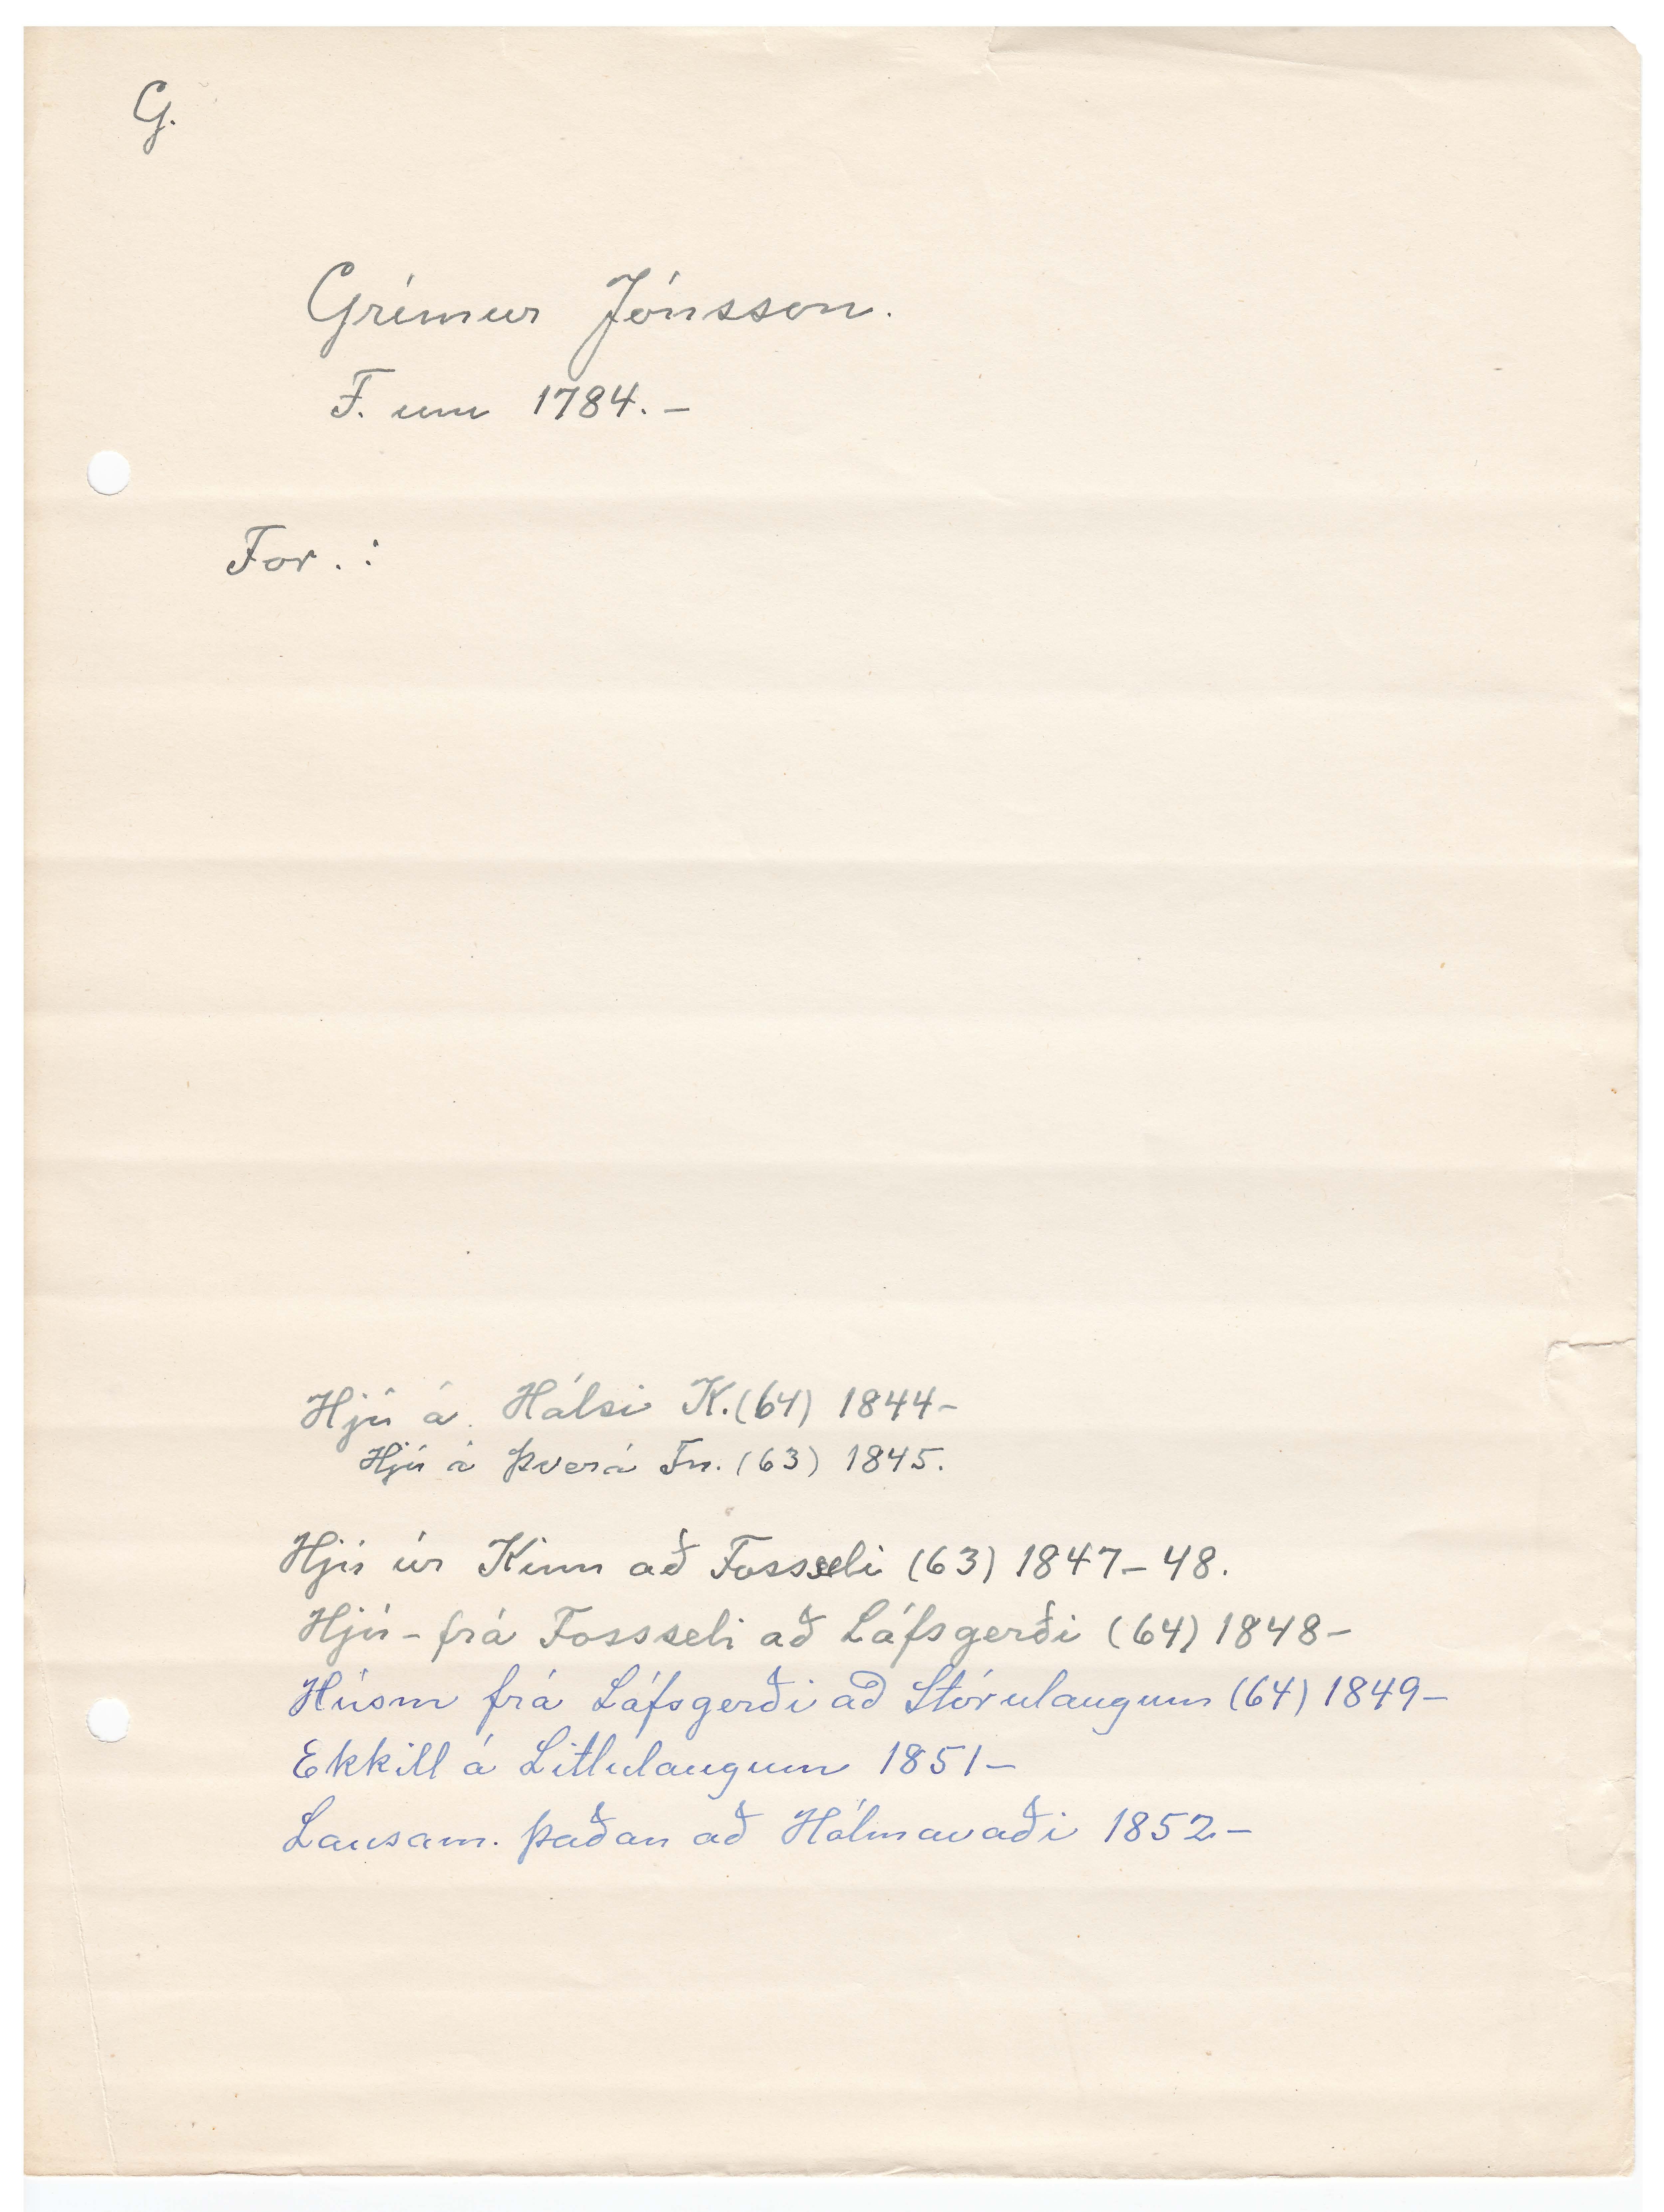 G.
Grímur Jónsson.
F. um 1784.-
For.:
Hjú á Hálsi K.(64) 1844-
Hjú á Þverá Fn.(63) 1845.
Hjú úr Kinn að Fossseli (63) 1847-48.
Hjú - frá Fossseli að Láfsgerði (64) 1848-
Húsm frá Láfsgerði að Stórulaugum (64) 1849-
Ekkill á Litlulaugum 1851-
Lausam. þaðan að Hólmavaði 1852-